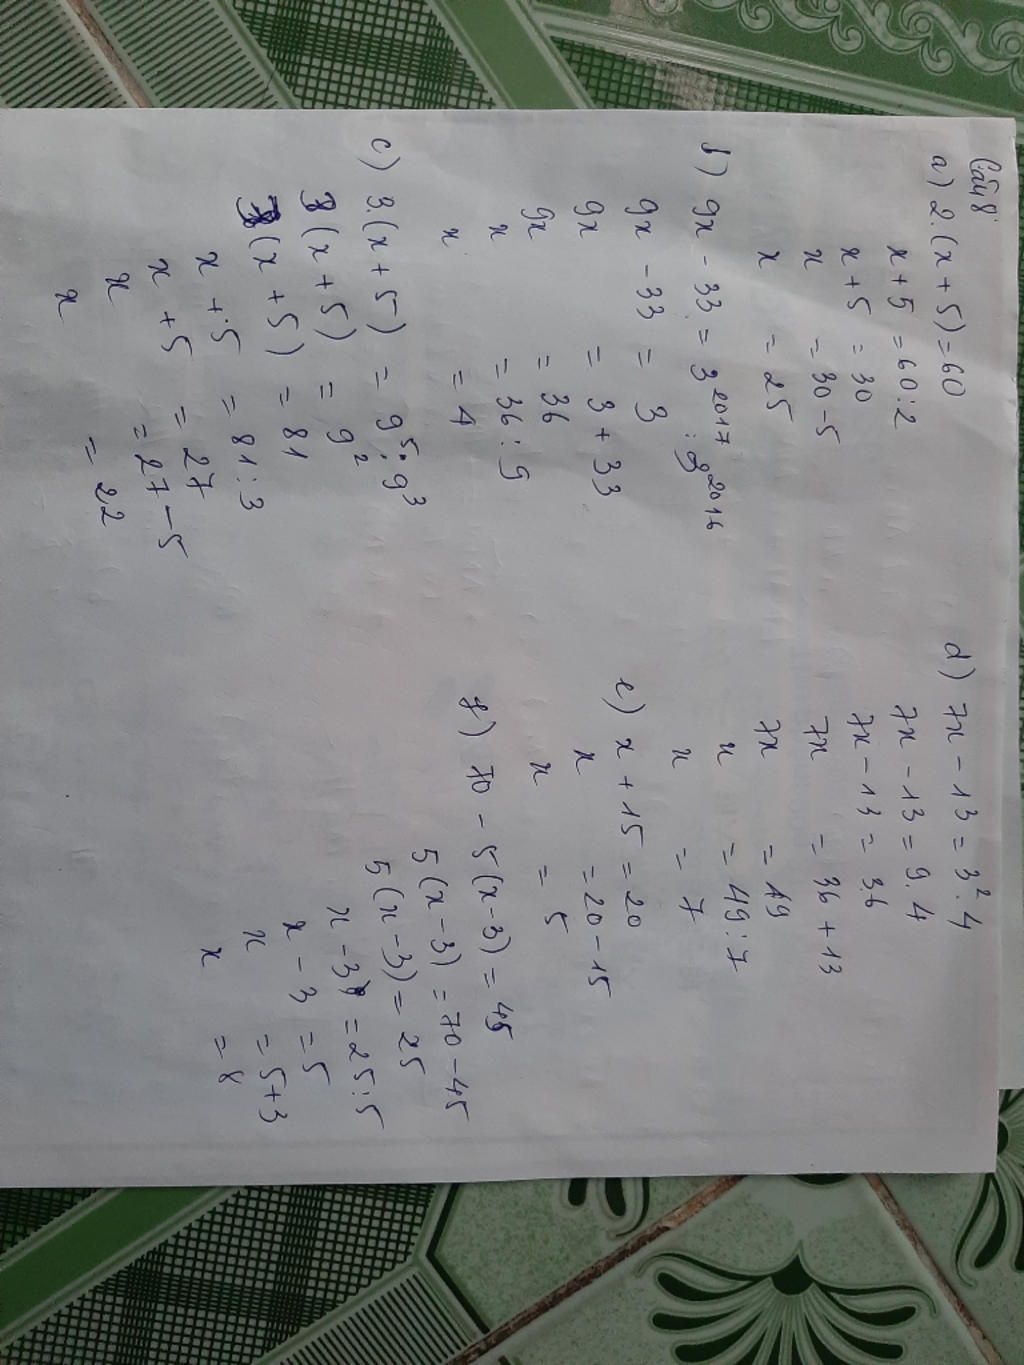 Câu 8
a) 2.(x + 5) = 60
x + 5 = 60 : 2
x + 5 = 30
x = 30 - 5
x = 25
b) 9x - 33 = 3^2017 : 3^2016
9x - 33 = 3
9x = 3 + 33
9x = 36
x = 36 : 9
x = 4
c) 3.(x + 5) = 9^5 : 9^3
3(x + 5) = 9^2
3(x + 5) = 81
x + 5 = 81 : 3
x + 5 = 27
x = 27 - 5
x = 22
d) 7x - 13 = 3^2.4
7x - 13 = 9.4
7x - 13 = 36
7x = 36 + 13
7x = 49
x = 49 : 7
x = 7
e) x + 15 = 20
x = 20 - 15
x = 5
f) 70 - 5(x - 3) = 45
5(x - 3) = 70 - 45
5(x - 3) = 25
x - 3 = 25 : 5
x - 3 = 5
x = 5 + 3
x = 8